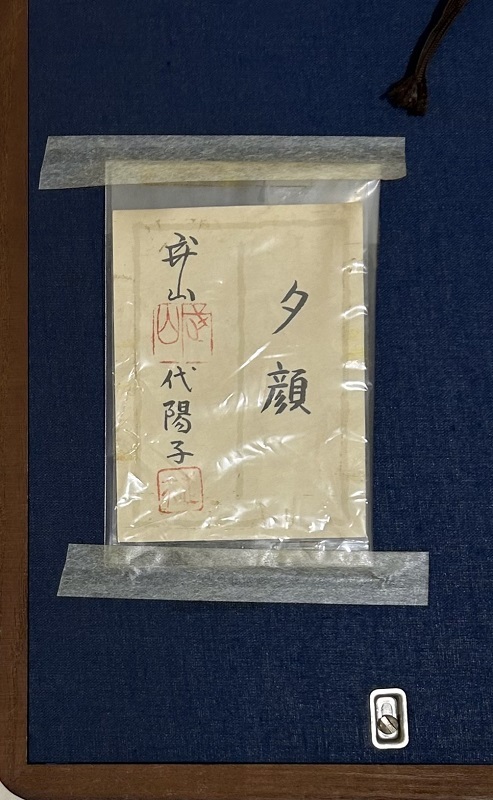 夕顔
山 代陽子